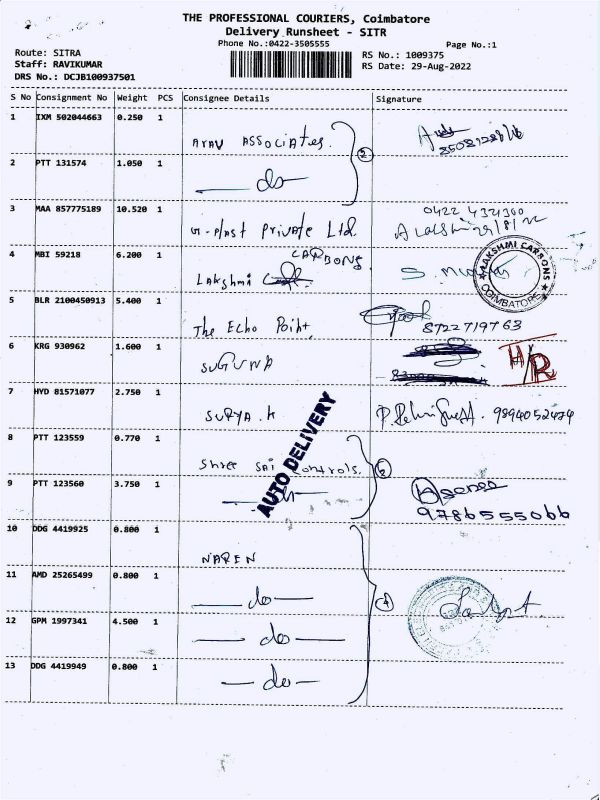 THE PROFESSIONAL COURIERS, Coimbatore
Delivery Runsheet - SITR
Phone No.:0422-3505555
Page No.:1
Route: SITRA
Staff: RAVIKUMAR
DRS No.: DCJB100937501
RS No.: 1009375
RS Date: 29-Aug-2022
S No Consignment No Weight PCS Consignee Details Signature
1 IXM 502044663 0.250 1
ARAV ASSOCIATES.
2 PTT 131574 1.050 1
do
2
3 MAA 857775189 10.520 1
G-Plast Private Ltd.
4 MBI 59218 6.200 1
Lakshmi CARBONS
LAKSHMI CARBONS
COIMBATORE
5 BLR 2100450913 5.400 1
The Echo Point,
8722719763
6 KRG 930962 1.600 1
SUGUNA
H/R
7 HYD 81571077 2.750 1
SURYA.K
9894052474
AUTO DELIVERY
8 PTT 123559 0.770 1
Shree SAI Controls.
2
9 PTT 123560 3.750 1
do
9786555066
10 DDG 4419925 0.800 1
NAREN
11 AMD 25265499 0.800 1
do
4
12 GPM 1997341 4.500 1
do
13 DDG 4419949 0.800 1
do